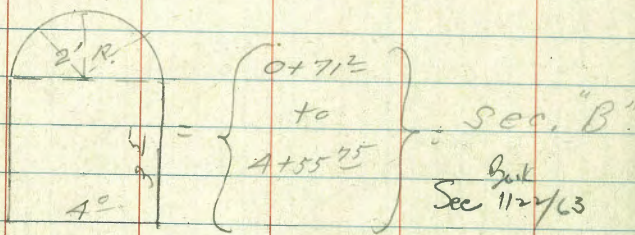 2' R.
3 5
4°
=
0+71²
to
4+55 75
: Sec. "B"
See Book 1122/63